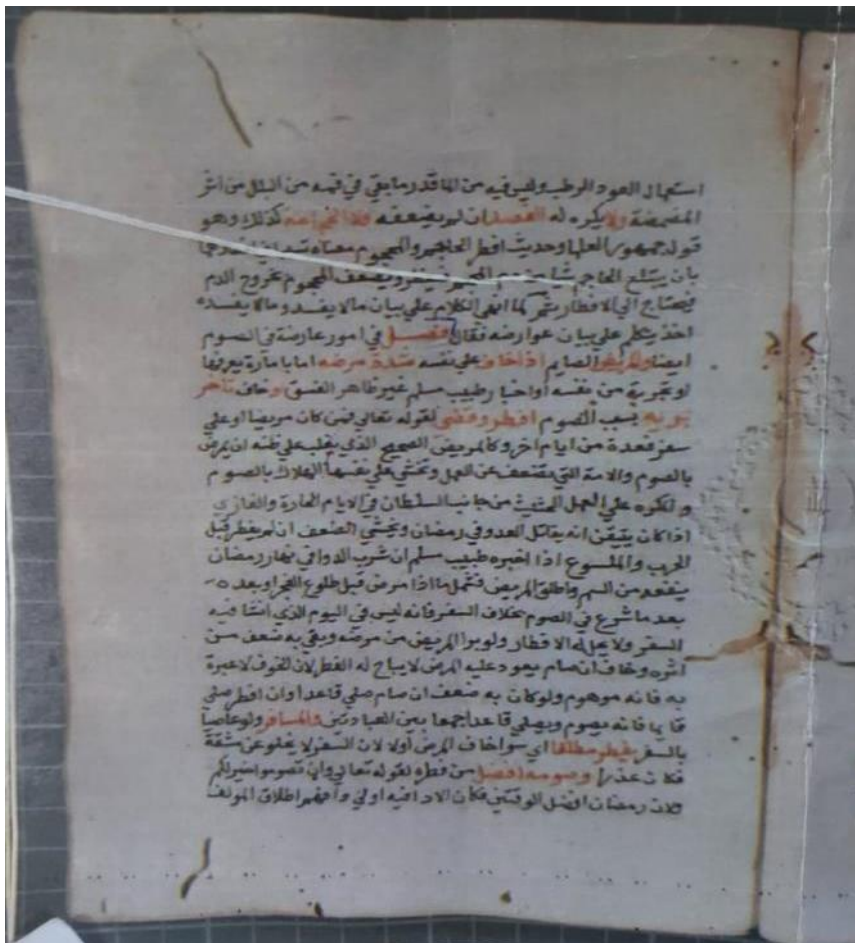 استعمال العود الرطب وليس فيه من الما قدر ما يبقي في فمه من البلل من اثر
المضمضة ولا يكره له الفصد ان لم يضعفه ولا الحجامه كذلك وهو
قول جمهور العلما وحديث افطر الحاجم والمحجوم معناه
بان يبتلع الحاجم شيا من دم المحجوم فيفطر ويضعف المحجوم بخروج الدم
فيحتاج الي الافطار ثم لما انهي الكلام علي بيان ما لا يفسد وما لا يفسده
اخذ يتكلم علي بيان عوارضه فقال فصل في امور عارضة في الصوم
ايضا والمريض الصايم اذا خاف علي نفسه شدة مرضه اما بامارة يعرفها
او تجربة من نفسه او اخبار طبيب مسلم غير ظاهر الفسق او خاف تاخر
بريه بسبب الصوم افطر وقضي لقوله تعالي فمن كان مريضا او علي
سفر فعدة من ايام اخر وكالمريض الصحيح الذي يغلب علي ظنه ان يمرض
بالصوم والامة التي تضعف عن العمل وتخشي علي نفسها الهلاك بالصوم
والمكره علي العمل الحثيث من جانب السلطان في الايام الحارة والغازي
اذا كان يتيقن انه يقاتل العدو في رمضان ويخشي الضعف ان لم يفطر قبل
الحرب والملسوع اذا اخبره طبيب مسلم ان شرب الدوا في نهار رمضان
ينقعه من السم واطلق المريض فشمل ما اذا مرض قبل طلوع الفجر او بعده
بعد ما شرع في الصوم بخلاف السفر فانه ليس في اليوم الذي انشا فيه
السفر ولا يحل له الافطار ولو برا المريض من مرضه وبقي به ضعف من
اثره وخاف ان صام يعود عليه المرض لا يباح له الفطر لان الخوف لا عبرة
به فانه موهوم ولو كان به ضعف ان صام صلي قاعدا وان افطر صلي
قايما فانه يصوم ويصلي قاعدا جمعا بين العبادتين والمسافر ولو عاصيا
بالسفر يفطر مطلقا اي سوا خاف المرض اولا لان السفر لا يخلو عن مشقة
فكان عذرا وصومه افضل من فطره لقوله تعالي وان تصوموا خير لكم
ولان رمضان افضل الوقتين فكان الادا فيه اولي اطلاق المولف